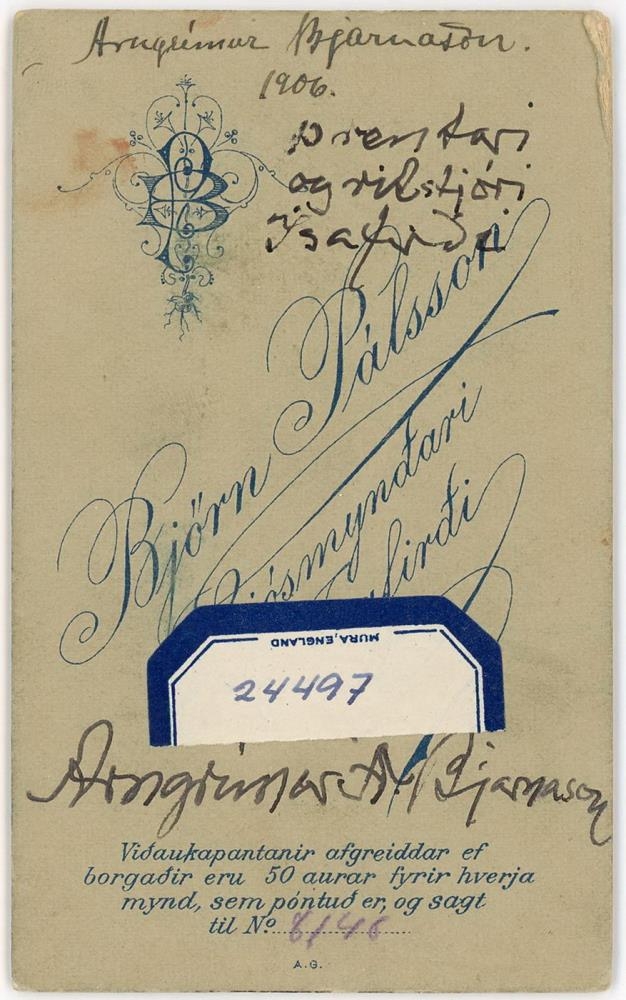 Arngrímur Bjarnason.
1906.
prentari
og ritstjóri
Ísafirði
Björn Pálsson
Ljósmyndari
MURA, ENGLAND
24497
Arngrímur A. Bjarnason
Viðaukapantanir afgreiddar ef
borgaðir eru 50 aurar fyrir hverja
mynd, sem pöntuð er, og sagt
til Nº
A.G.